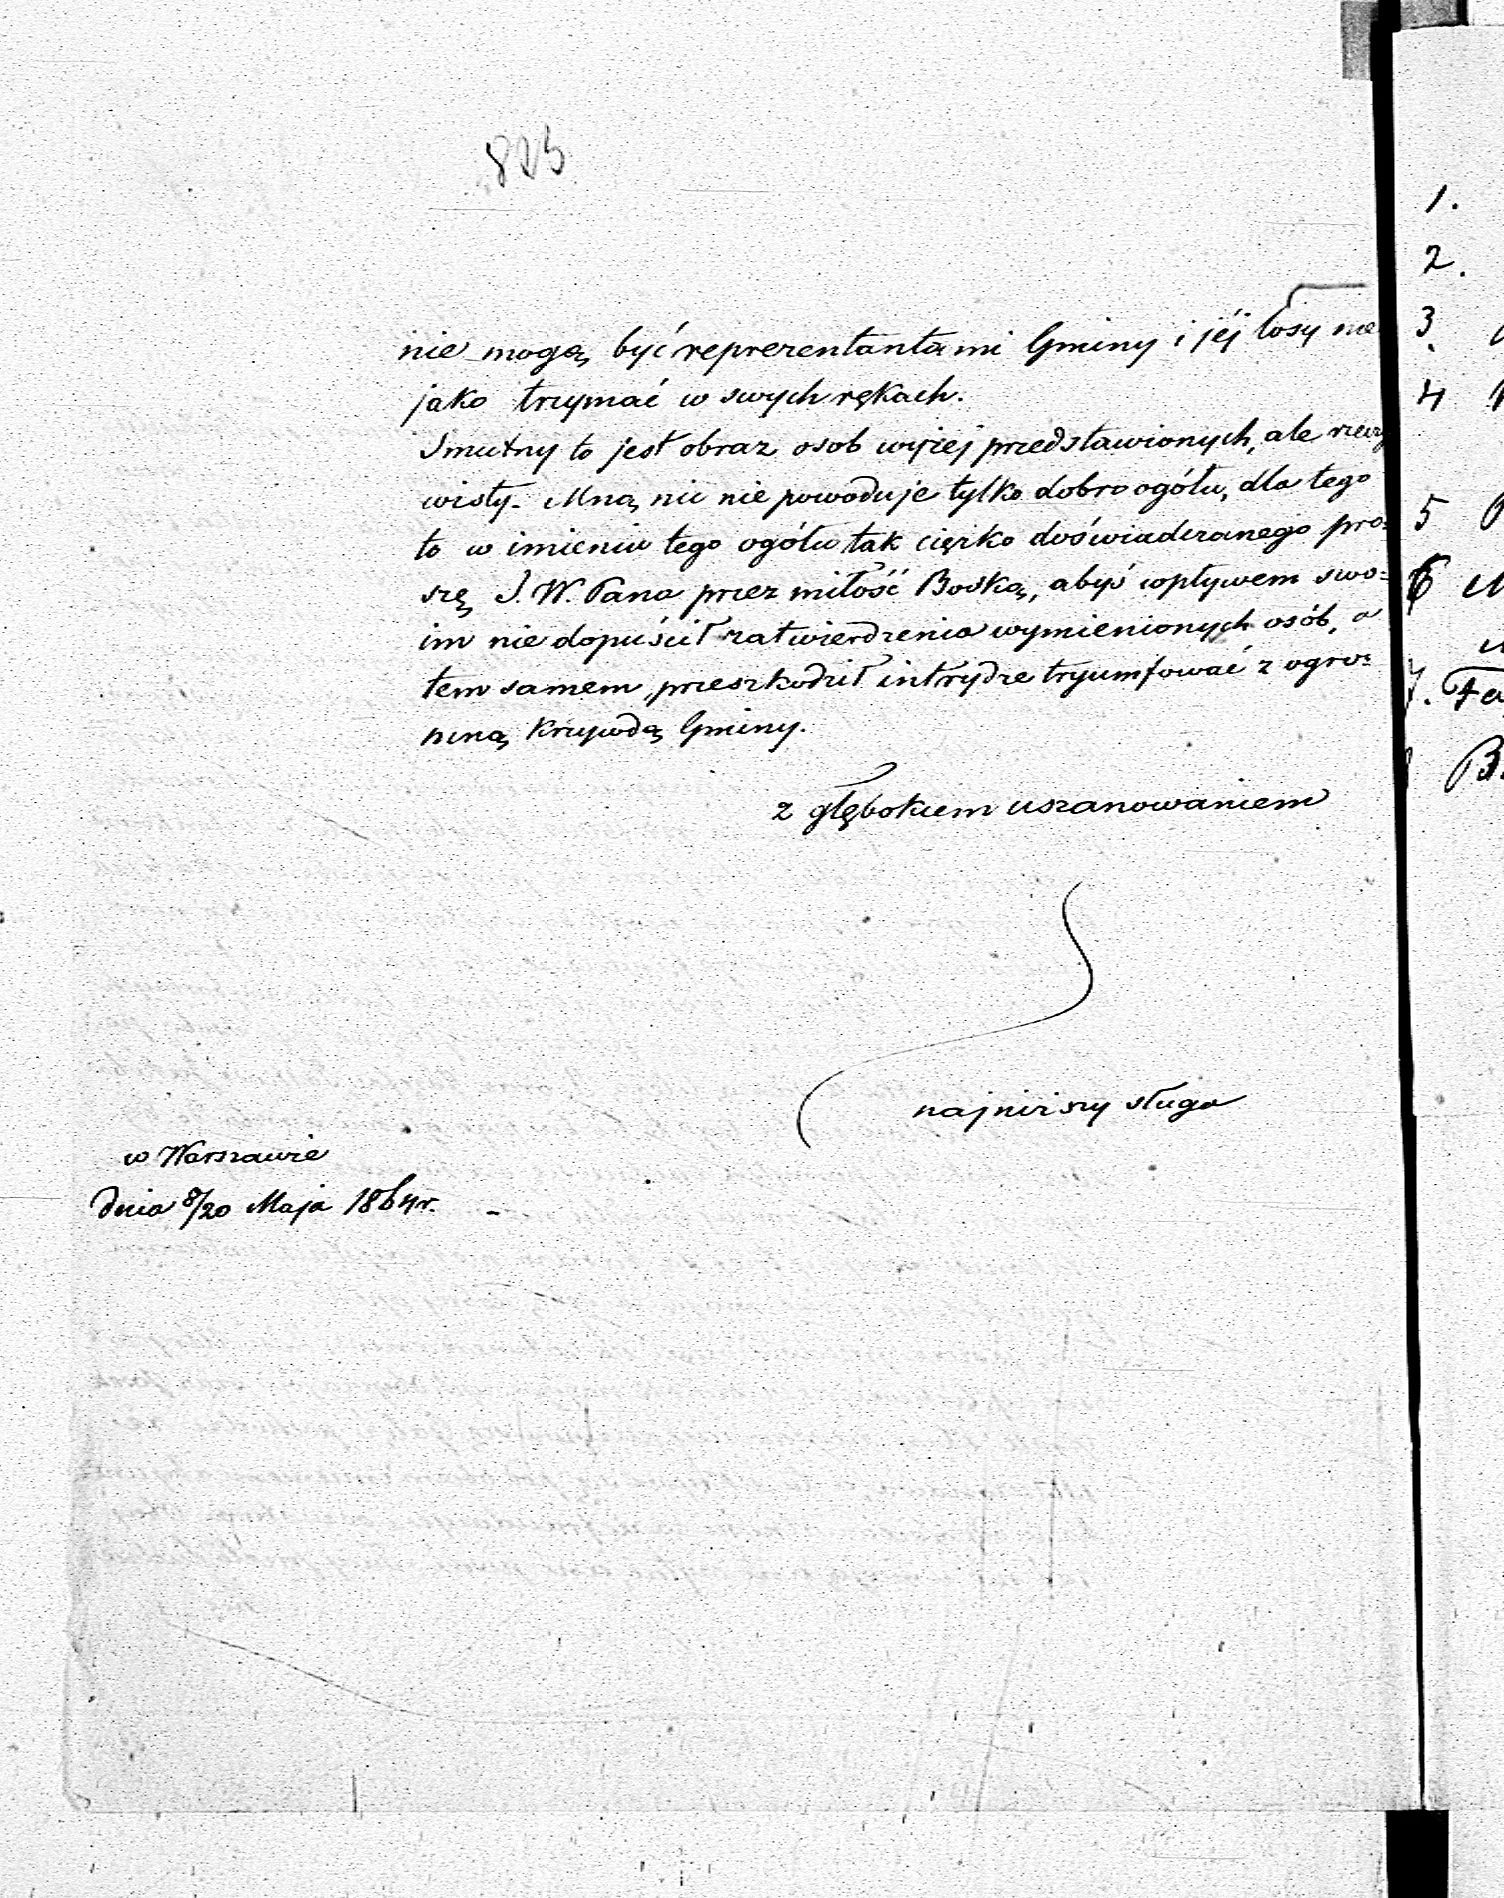 825
nie mogą być reprezentantami Gminy i jéj losy nie
jako trzymać w swych rękach.
Smutny to jest obraz osob wyżej przedstawionych, ale rzeczy
wisty. Mną nic nie powoduje tylko dobro ogółu, dla tego
to w imieniu tego ogółu tak ciężko doświadczanego pro=
szę J. W. Pana przez miłość Boską, abyś wpływem swo=
im nie dopuścił zatwierdzenia wymienionych osób, a
tem samem przeszkodził intrydze tryumfować z ogro=
mną krzywdą Gminy.
z głębokiem uszanowaniem
najniższy sługa
w Warszawie
dnia 8/20 Maja 1864 r.
1.
2.
3.
4
5
6
7. Fa
B.